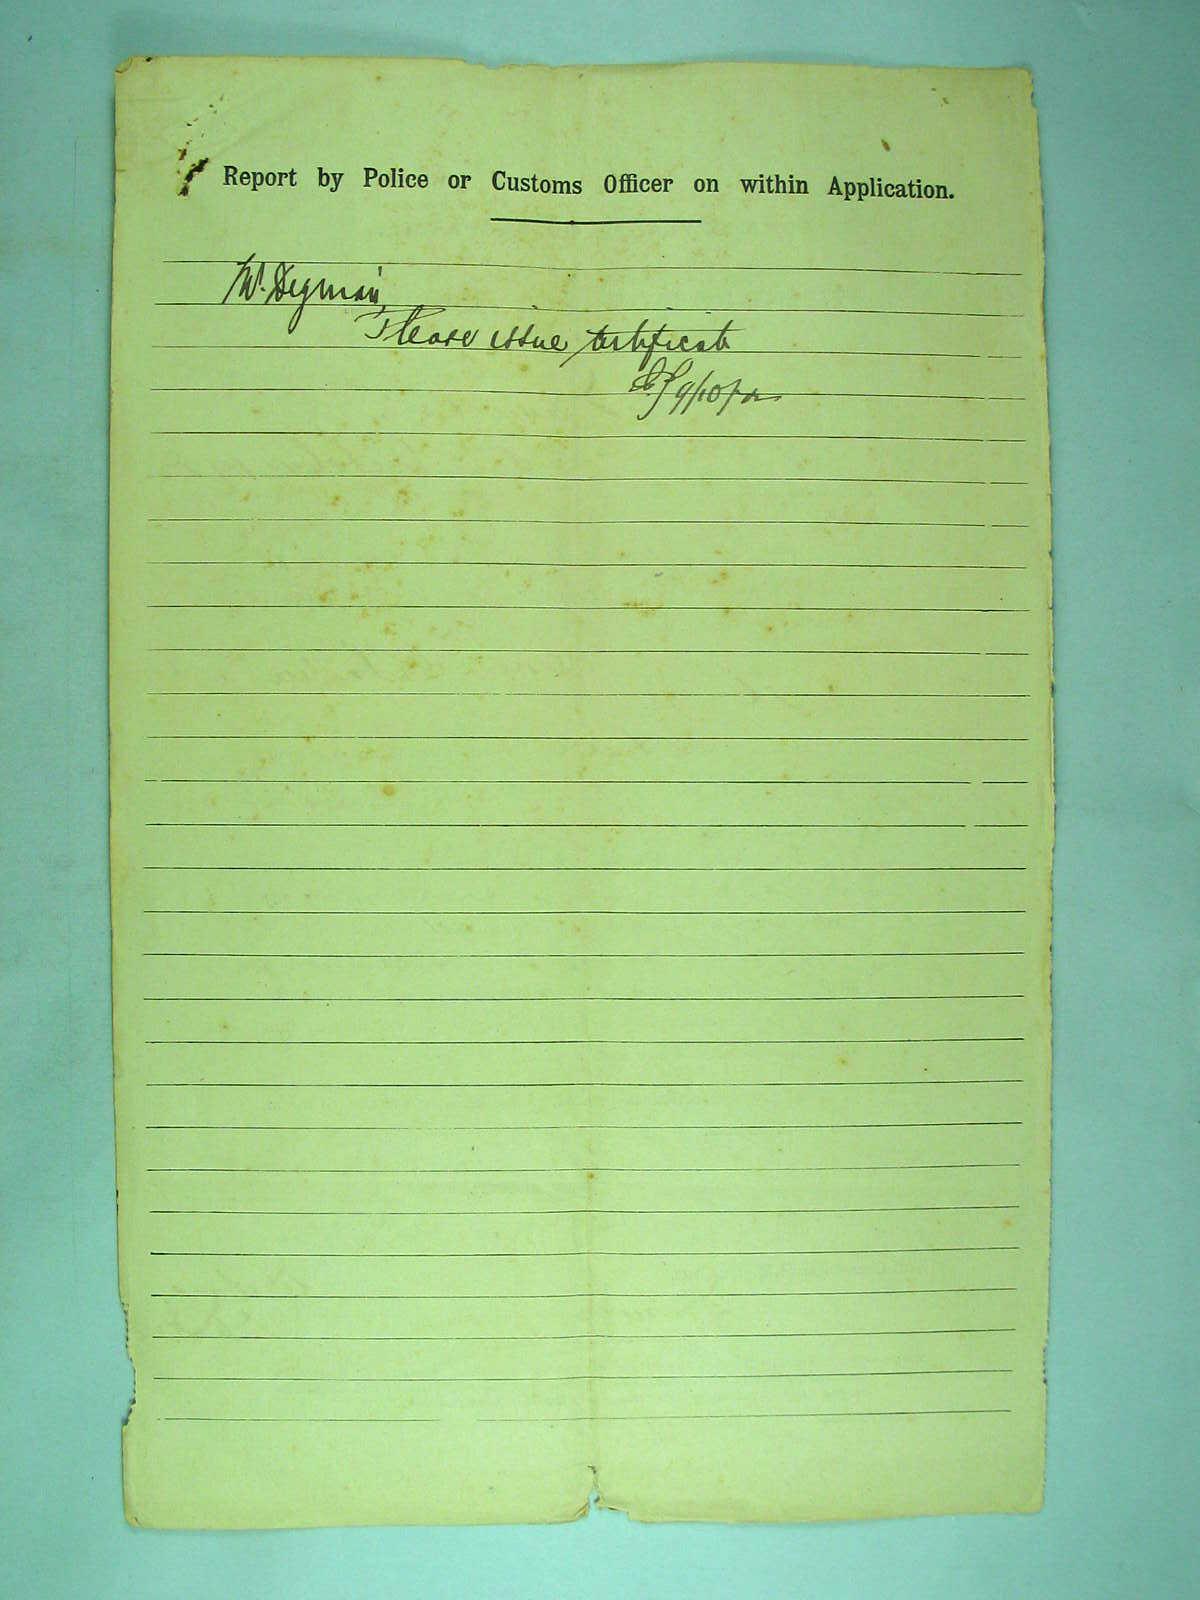 Report by Police or Customs Officer on within Application.
Mr. Degman
Please issue certificate
9/10/02